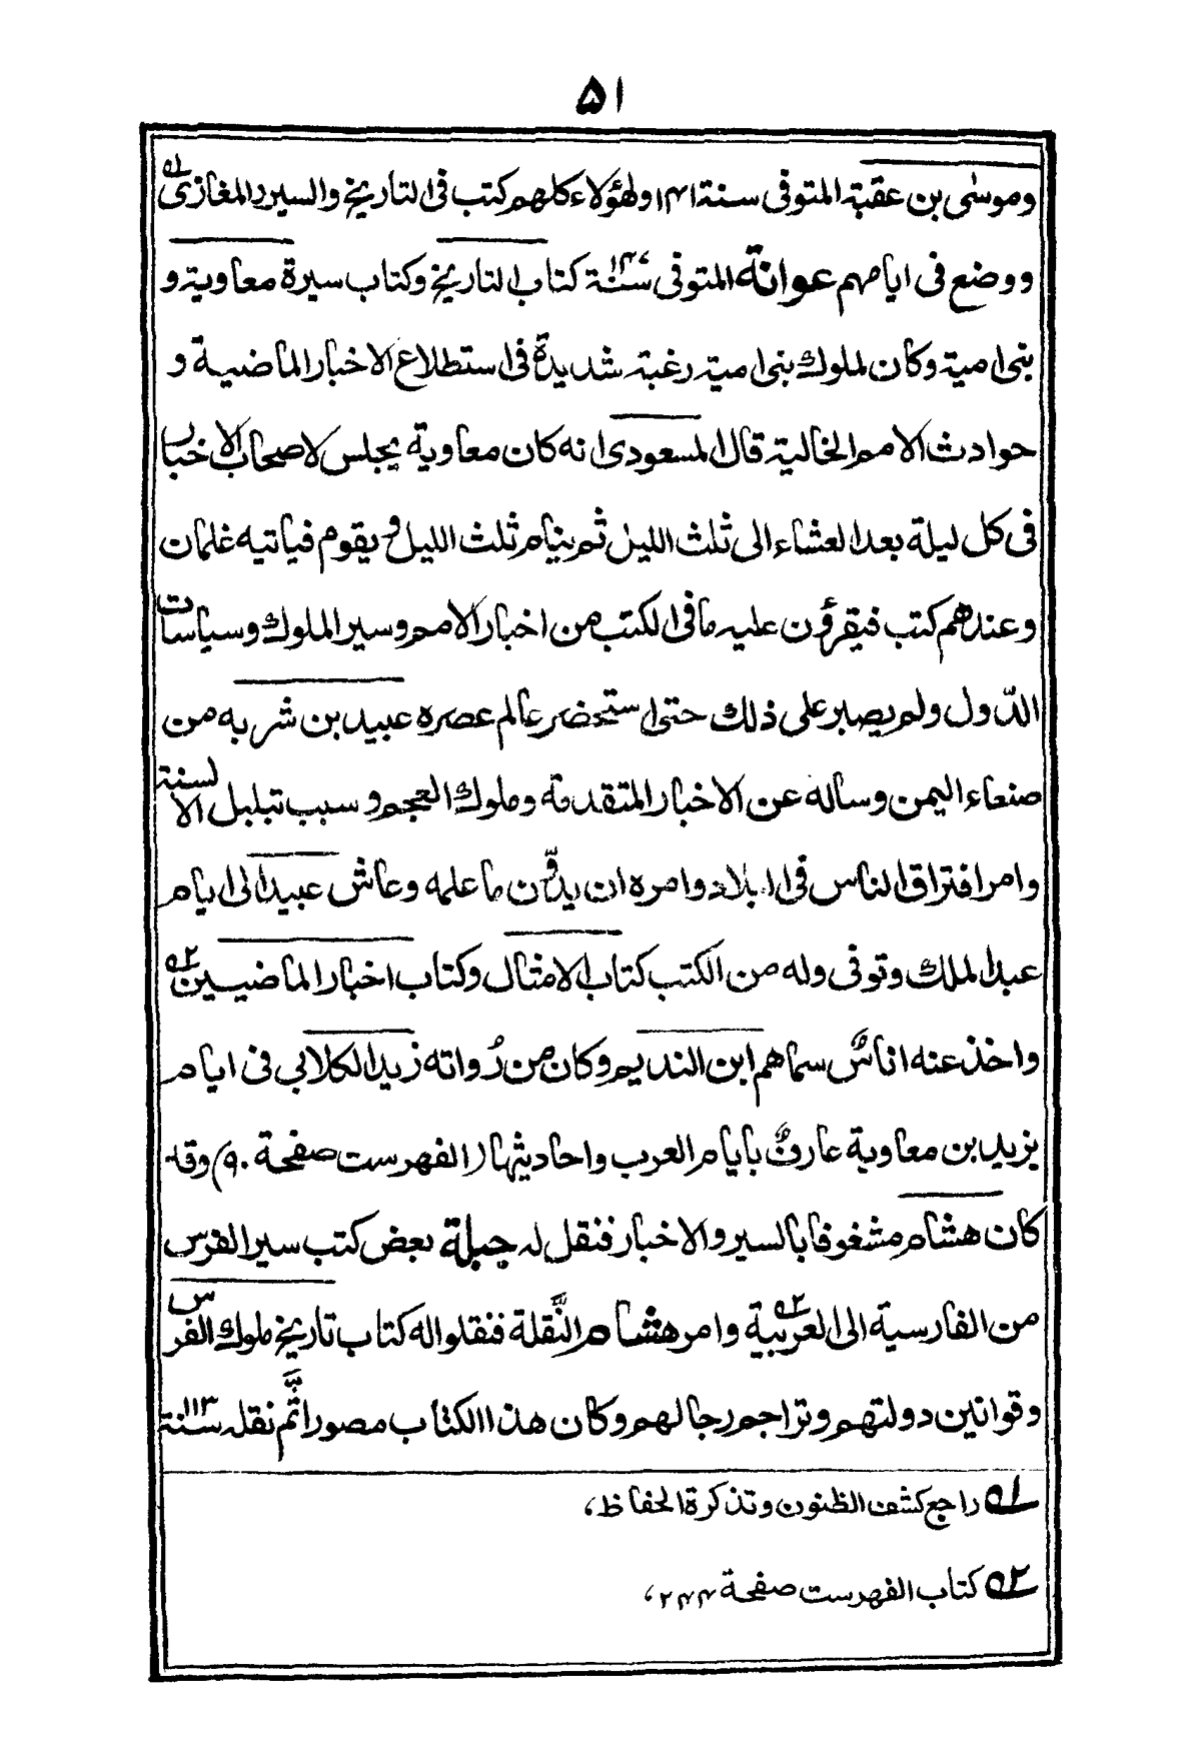 ٥١
وموسٰى بن عقبة المتوفى سنة ١٤١ ولهؤلاء كلهم كتب فى التاريخ والسير والمغازى ١ه
ووضع فى ايامهم عوانة المتوفى سنة ١٤٧ كتاب التاريخ وكتاب سيرة معاوية و
بنى امية وكان لملوك بنى امية رغبة شديدة فى استطلاع الاخبار الماضية و
حوادث الامم الخالية قال المسعودى انه كان معاوية يجلس لاصحاب الاخبار
فى كل ليلة بعد العشاء الى ثلث الليل ثم ينام ثلث الليل ويقوم فياتيه غلمان
وعندهم كتب فيقرؤن عليه ما فى الكتب من اخبار الامم وسير الملوك وسياسات
الدّول ولم يصبر على ذلك حتى استحضر عالم عصره عبيد بن شربه من
صنعاء اليمن وساله عن الاخبار المتقدمة وملوك العجم وسبب تبلبل الالسنة
وامر افتراق الناس فى البلاد وامره ان يدوّن ما علمه وعاش عبيد الى ايام
عبد الملك وتوفى وله من الكتب كتاب الامثال وكتاب اخبار الماضيين ٢ه
واخذ عنه اناسٌ سماهم ابن النديم وكان من رُواته زيد الكلابي فى ايام
يزيد بن معاوية عارفٌ بايام العرب واحاديثها (الفهرست صفحة ٩٠) وقد
كان هشام مشغوفا بالسير والاخبار فنقل له جبلة بعض كتب سير الفرس
من الفارسية الى العربية ٣ه وامر هشام النَّقلة فنقلوا له كتاب تاريخ ملوك الفرس
وقوانين دولتهم وتراجم رجالهم وكان هذا الكتاب مصورا تَّم نقله سنة ١١٣
١ه راجع كشف الظنون وتذكرة الحفاظ،
٢ه كتاب الفهرست صفحة ٢٤٤،